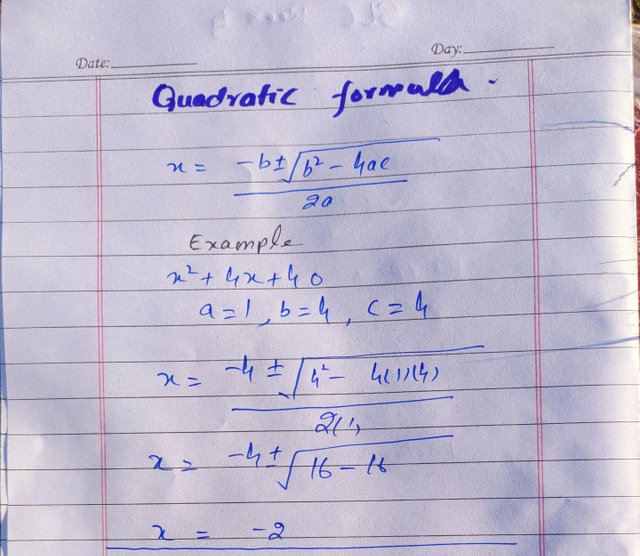 Date:
Day:
Quadratic formula.
x = -b±√b²-4ac
2a
Example
x²+4x+4 0
a=1, b=4, c=4
x = -4 ± √4²- 4(1)(4)
2(1)
x = -4±√16-16
x = -2